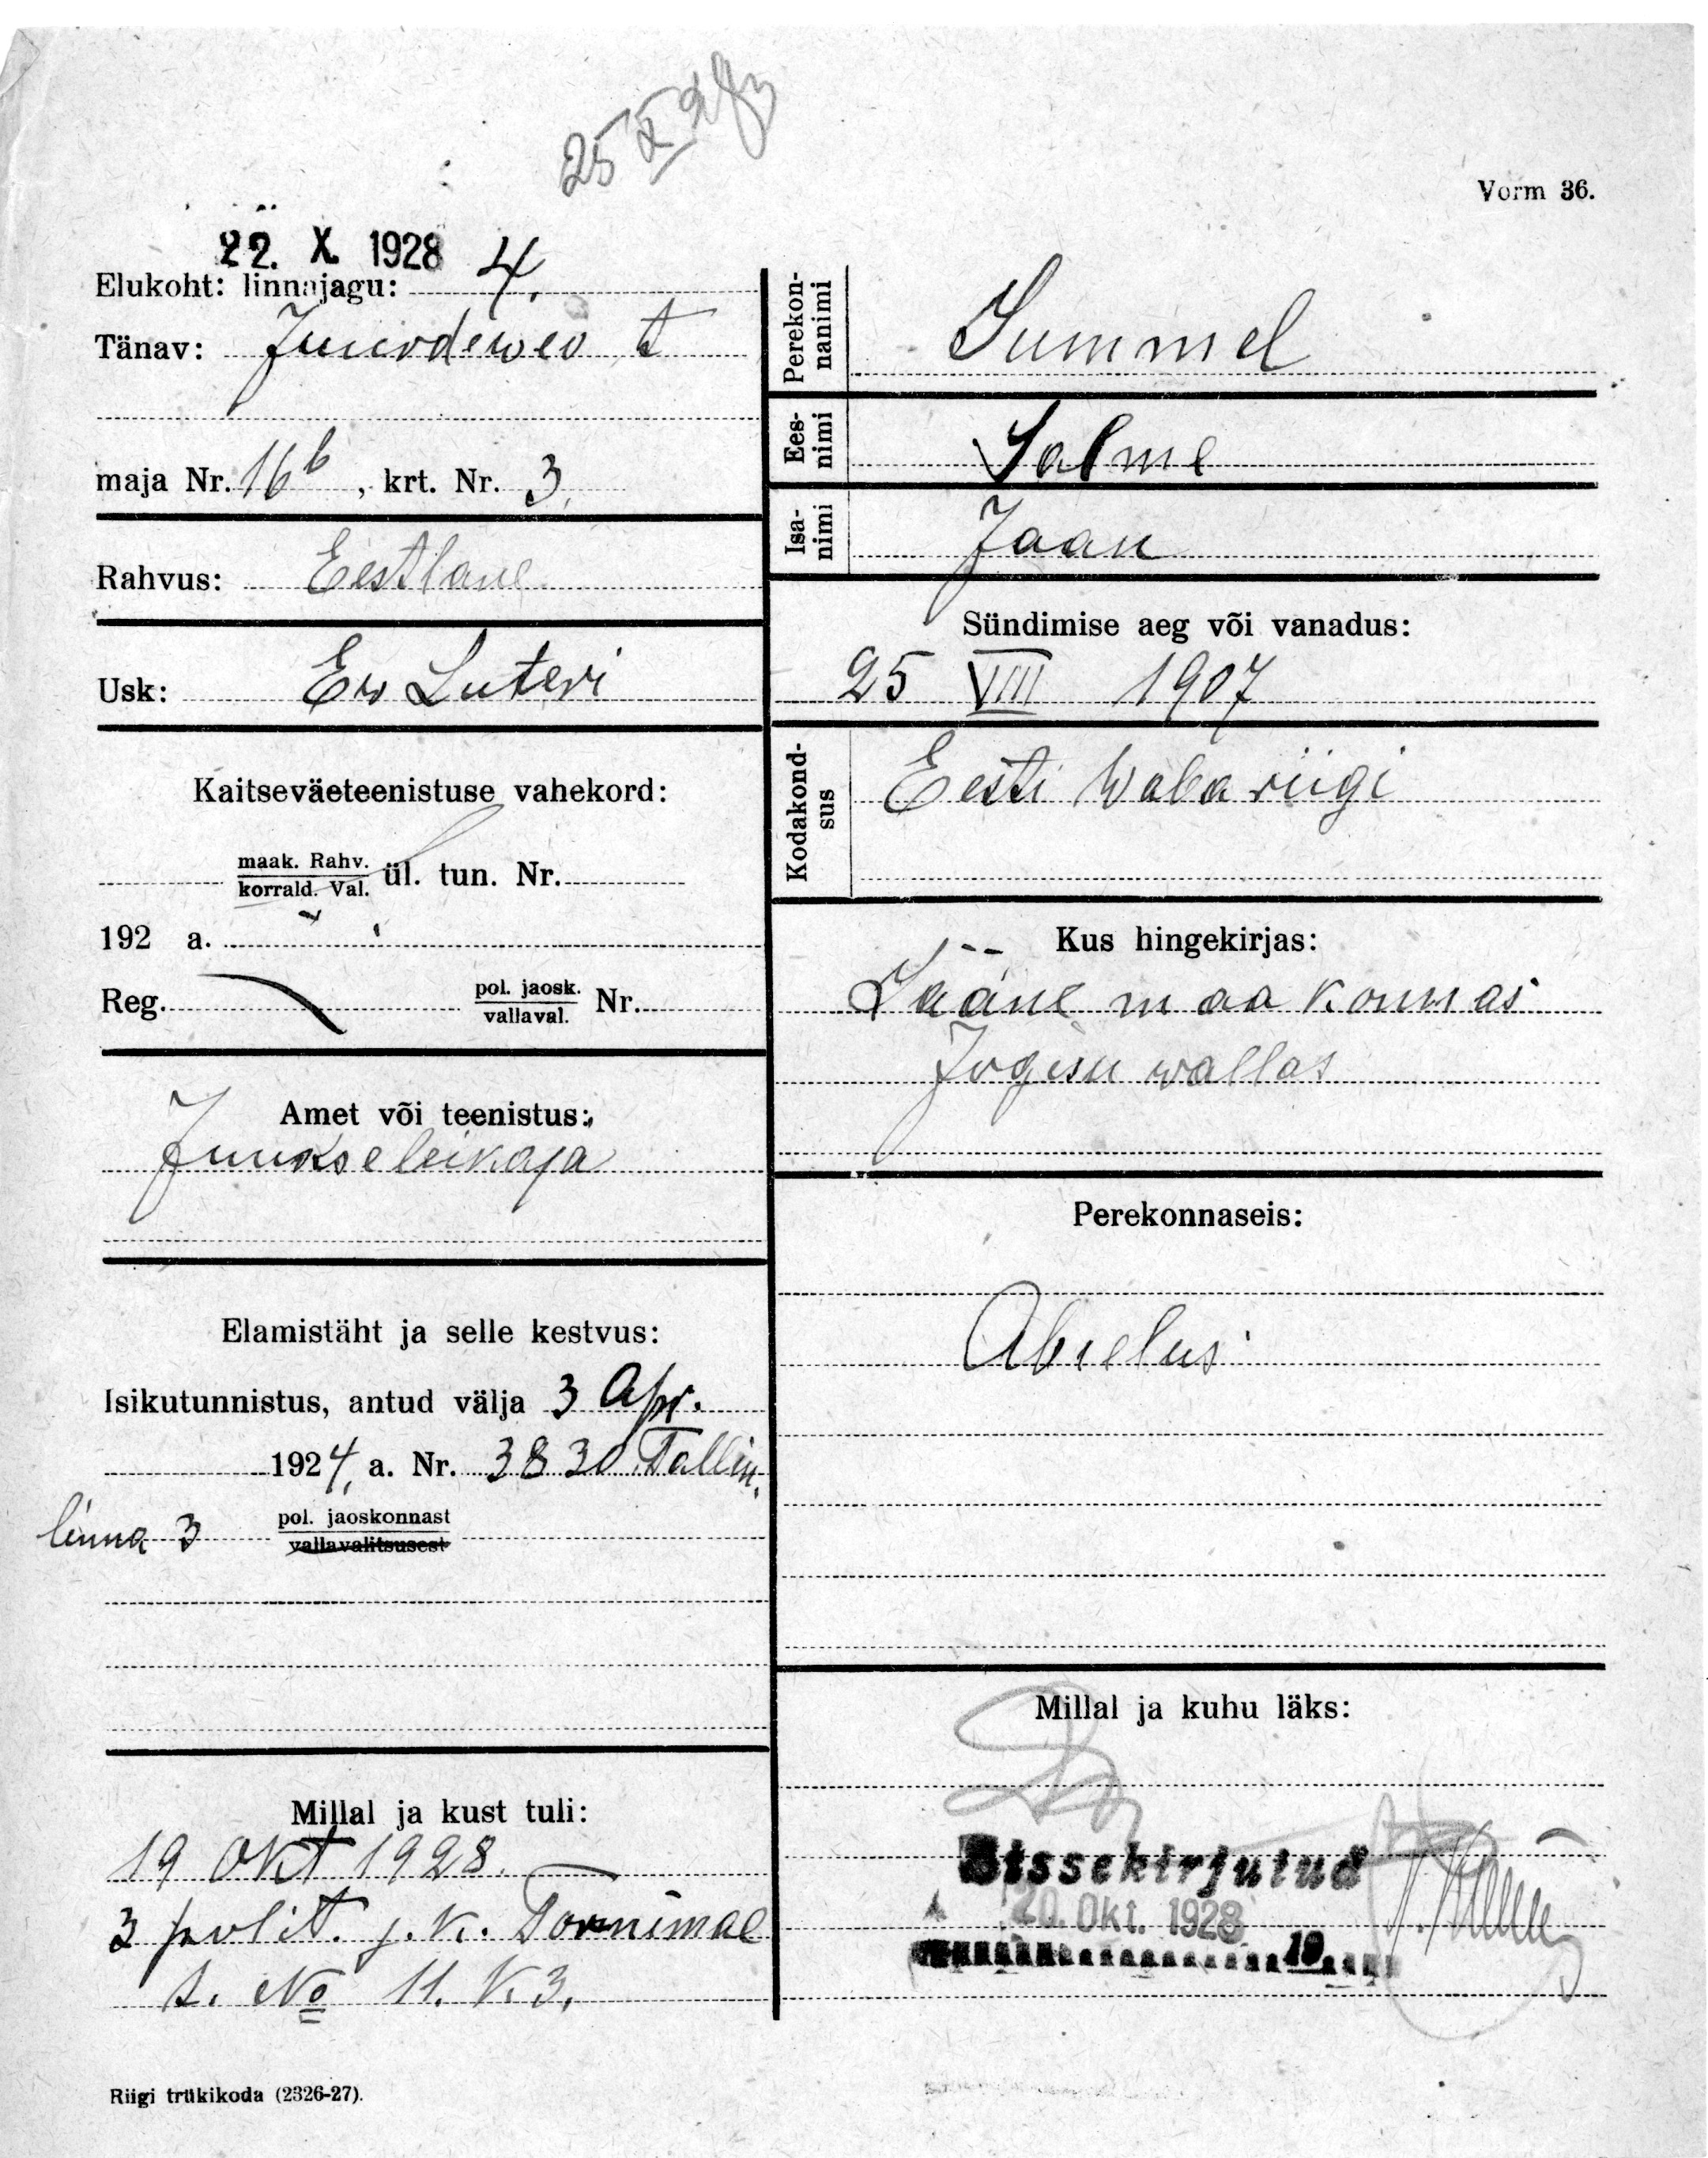 25 X
Vorm 36.
22. X. 1928
Elukoht: linnajagu: 4.
Tänav: t
maja Nr. 16b, krt. Nr. 3
Rahvus: Eestlane
Usk: Ev Luteri
Kaitseväeteenistuse vahekord:
maak. Rahv.
korrald. Val. ül. tun. Nr.
192 a.
Reg. pol. jaosk.
vallaval. Nr.
Amet või teenistus:
Juukseleikaja
Elamistäht ja selle kestvus:
Isikutunnistus, antud välja 3 Apr.
1924, a. Nr. 3830 Tallin.
linna 3 pol. jaoskonnast
vallavalitsusest
Millal ja kust tuli:
19 Okt 1928.
3 polit. j. k. Tornimäe
t. No 11. K. 3.
Riigi trükikoda (2326-27).
Perekon-
nanimi
Summel
Ees-
nimi
Salme
Isa-
nimi
Jaan
Sündimise aeg või vanadus:
25 VIII 1907
Kodakond-
sus
Eesti Wabariigi
Kus hingekirjas:
Lääne maakonnas
Jõgisu wallas
Perekonnaseis:
Abielus
Millal ja kuhu läks:
Sissekirjutud
20. Okt. 1928
19